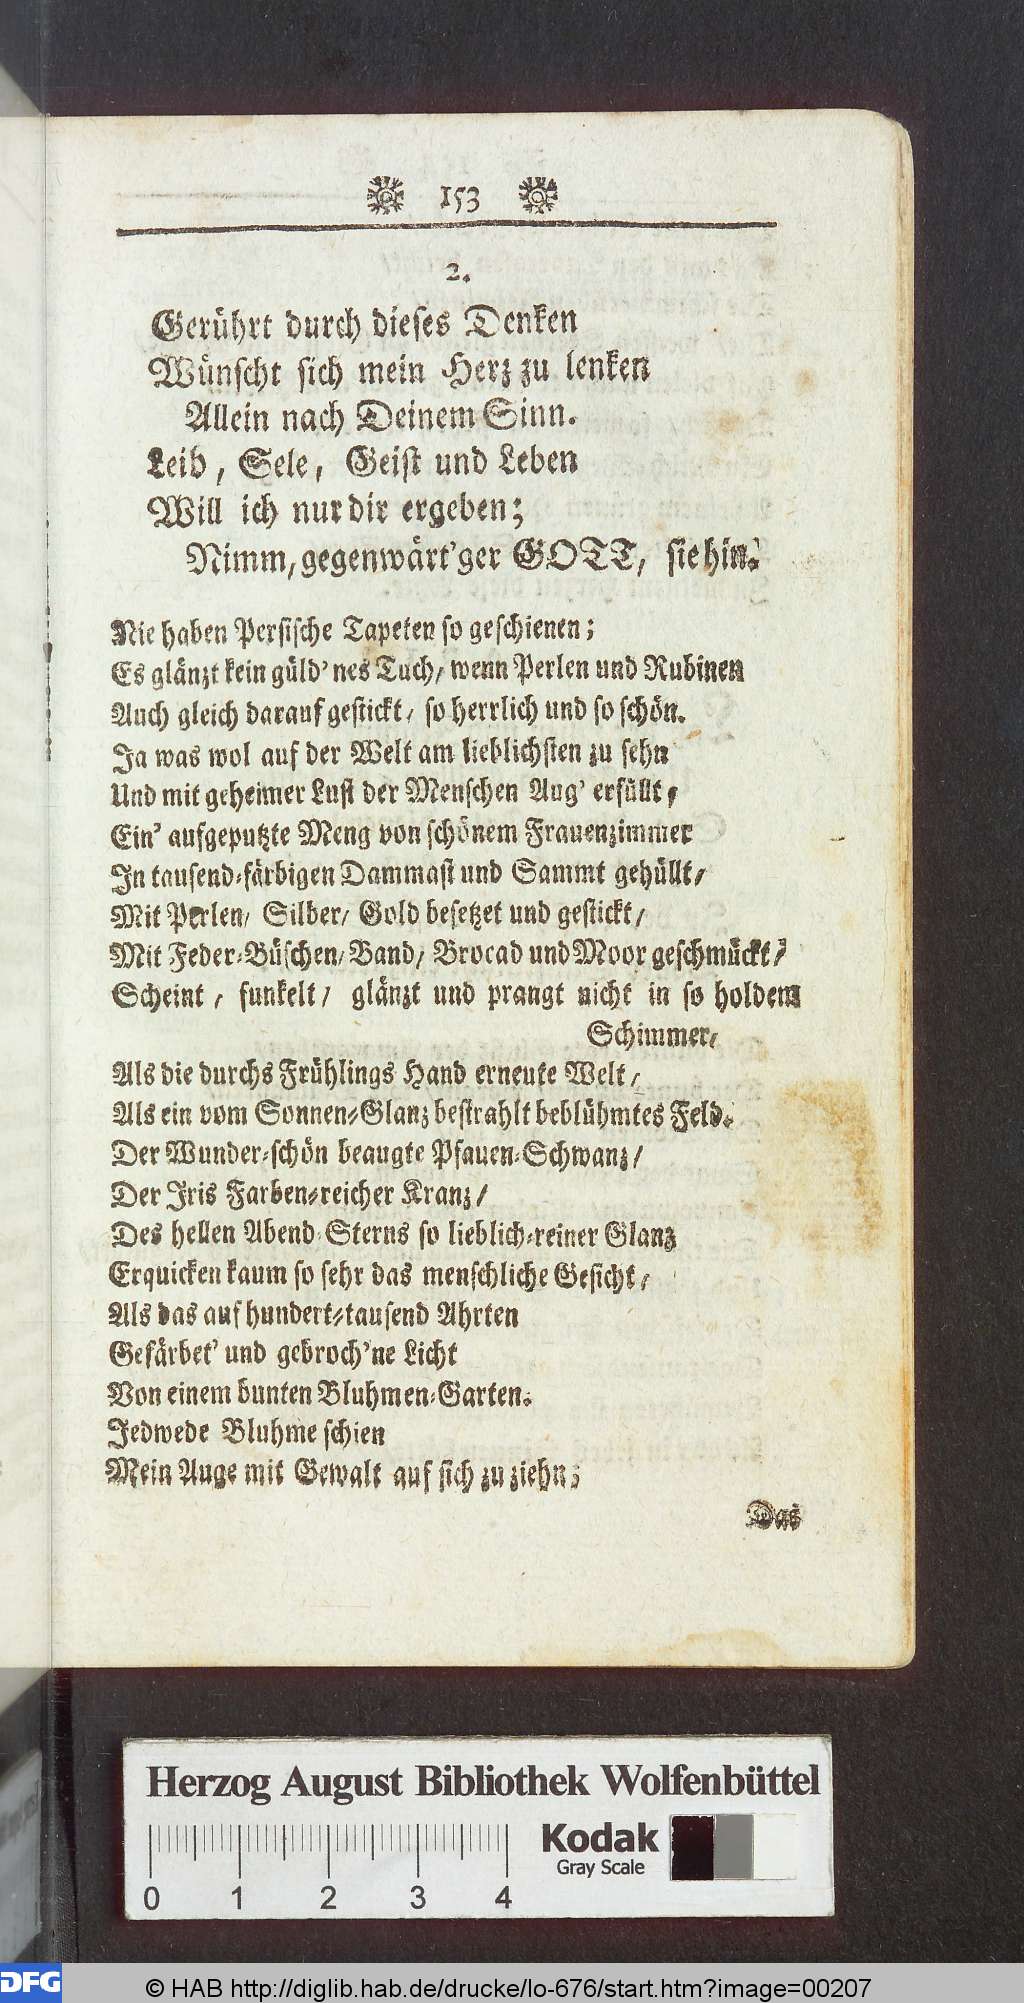 153
2.
Gerührt durch dieses Denken
Wünscht sich mein Herz zu lenken
Allein nach Deinem Sinn.
Leib, Sele, Geist und Leben
Will ich nur dir ergeben;
Nimm, gegenwärt'ger GOTT, sie hin.
Nie haben Persische Tapeten so geschienen;
Es glänzt kein güld'nes Tuch/ wenn Perlen und Rubinen
Auch gleich darauf gestickt/ so herrlich und so schön.
Ja was wol auf der Welt am lieblichsten zu sehn
Und mit geheimer Lust der Menschen Aug' erfüllt/
Ein' aufgeputzte Meng von schönem Frauenzimmer
In tausend-färbigen Dammast und Sammt gehüllt/
Mit Perlen/ Silber/ Gold besetzet und gestickt/
Mit Feder-Büschen/ Band/ Brocad und Moor geschmückt/
Scheint/ funkelt/ glänzt und prangt nicht in so holdem
Schimmer/
Als die durchs Frühlings Hand erneute Welt/
Als ein vom Sonnen-Glanz bestrahlt beblühmtes Feld.
Der Wunder-schön beaugte Pfauen-Schwanz/
Der Iris Farben-reicher Kranz/
Des hellen Abend-Sterns so lieblich-reiner Glanz
Erquicken kaum so sehr das menschliche Gesicht/
Als das auf hundert-tausend Ahrten
Gefärbet' und gebroch'ne Licht
Von einem bunten Bluhmen-Garten.
Jedwede Bluhme schien
Mein Auge mit Gewalt auf sich zu ziehn;
Das
Herzog August Bibliothek Wolfenbüttel
Kodak
Gray Scale
0 1 2 3 4
DFG
© HAB http://diglib.hab.de/drucke/lo-676/start.htm?image=00207